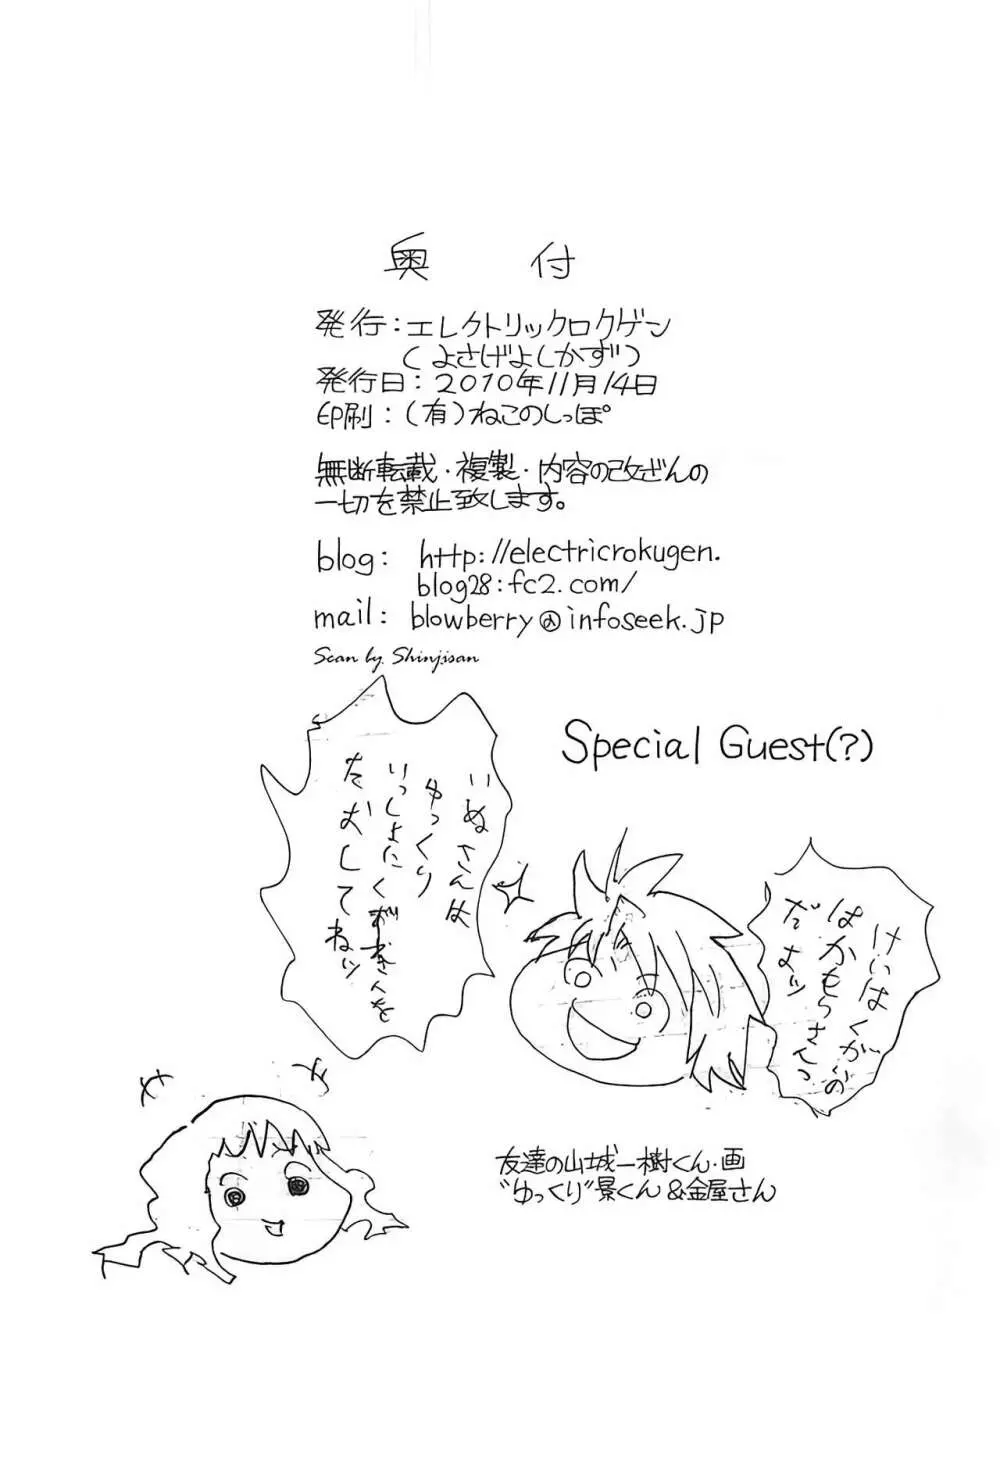 奥付
発行：エレクトリックロクゲン
(よさげよしかず)
発行日：2010年11月14日
印刷：(有)ねこのしっぽ
無断転載・複製・内容の改ざんの
一切を禁止致します。
blog: http://electricrokugen.
blog28.fc2.com/
mail: blowberry@infoseek.jp
Scan by Shinjisan
Special Guest(?)
けいはくがいの
はかもらさんっ
だよッ
いぬさんは
ゆっくり
いっしょにくずきさんを
たおしてねッ
友達の山城一樹くん・画
"ゆっくり"景くん&金屋さん